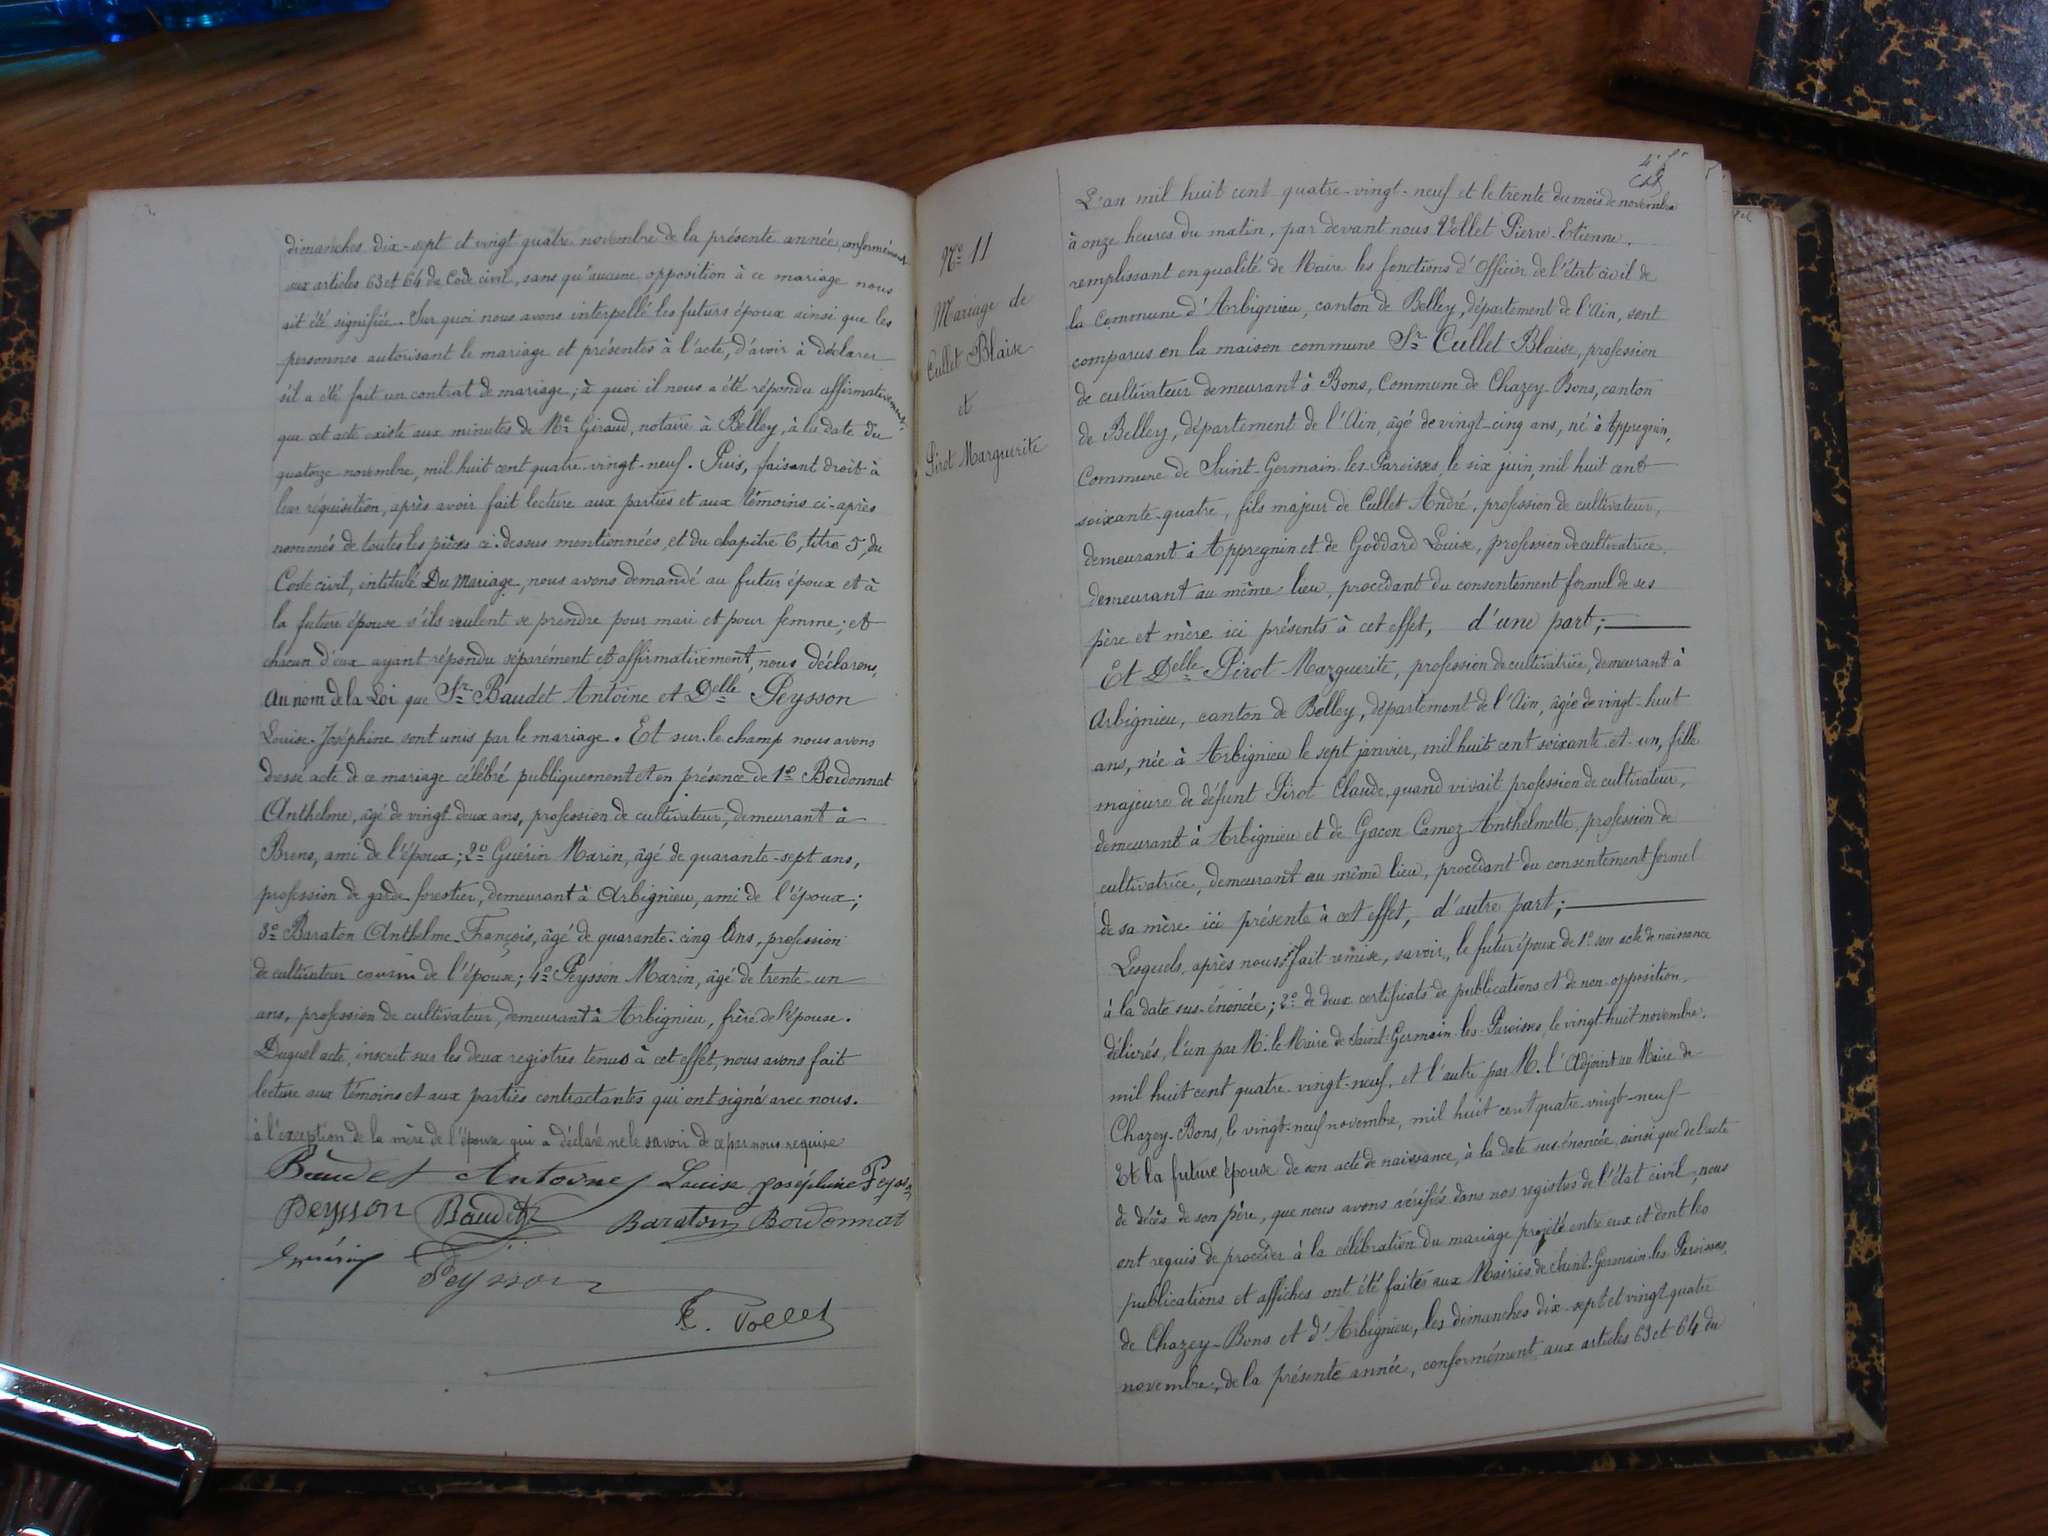 dimanches dix-sept et vingt quatre novembre de la présente année, conformément
aux articles 63 et 64 du Code civil, sans qu'aucune opposition à ce mariage nous
ait été signifiée. Sur quoi nous avons interpellé les futurs époux ainsi que les
personnes autorisant le mariage et présentes à l'acte, d'avoir à déclarer
s'il a été fait un contrat de mariage; à quoi il nous a été répondu affirmativement:
que cet acte existe aux minutes de Me Giraud, notaire à Belley, à la date du
quatorze novembre, mil huit cent quatre-vingt-neuf. Puis, faisant droit à
leur réquisition, après avoir fait lecture aux parties et aux témoins ci-après
nommés de toutes les pièces ci-dessus mentionnées, et du chapitre 6, titre 5, du
Code civil, intitulé Du Mariage, nous avons demandé au futur époux et à
la future épouse s'ils veulent se prendre pour mari et pour femme; et
chacun d'eux ayant répondu séparément et affirmativement, nous déclarons,
Au nom de la Loi que Sr Baudet Antoine et Delle Peysson
Louise-Joséphine sont unis par le mariage. Et sur-le-champ nous avons
dressé acte de ce mariage célébré publiquement et en présence de 1º Bordonnat
Anthelme, âgé de vingt-deux ans, profession de cultivateur, demeurant à
Brens, ami de l'époux; 2º Guérin Marin, âgé de quarante-sept ans,
profession de garde forestier, demeurant à Arbignieu, ami de l'époux;
3º Baraton Anthelme-François, âgé de quarante-cinq ans, profession
de cultivateur cousin de l'épouse; 4º Peysson Marin, âgé de trente-un
ans, profession de cultivateur, demeurant à Arbignieu, frère de l'épouse.
Duquel acte, inscrit sur les deux registres tenus à cet effet, nous avons fait
lecture aux témoins et aux parties contractantes qui ont signé avec nous.
à l'exception de la mère de l'épouse qui a déclaré ne le savoir de ce par nous requise
Baudet Antoine Louise Joséphine Peysson
Peysson Baudet Baraton Bordonnat
Guérin Peysson
E. Vollet
Nº 11
Mariage de
Cullet Blaise
et
Pirot Marguerite
L'an mil huit cent quatre-vingt-neuf et le trente du mois de novembre
à onze heures du matin, par devant nous Vollet Pierre-Etienne,
remplissant en qualité de Maire les fonctions d'Officier de l'état civil de
la Commune d'Arbignieu, canton de Belley, département de l'Ain, sont
comparus en la maison commune Sr Cullet Blaise, profession
de cultivateur demeurant à Bons, Commune de Chazey-Bons, canton
de Belley, département de l'Ain, âgé de vingt-cinq ans, né à Appregnin,
Commune de Saint-Germain-les-Paroisses, le six juin, mil huit cent
soixante-quatre, fils majeur de Cullet André, profession de cultivateur,
demeurant à Appregnin et de Goddard Louise, profession de cultivatrice,
demeurant au même lieu, procédant du consentement formel de ses
père et mère ici présents à cet effet, d'une part;
Et Delle Pirot Marguerite, profession de cultivatrice, demeurant à
Arbignieu, canton de Belley, département de l'Ain, âgée de vingt-huit
ans, née à Arbignieu le sept janvier, mil huit cent soixante-et-un, fille
majeure de défunt Pirot Claude, quand vivait profession de cultivateur,
demeurant à Arbignieu et de Gacon Camoz Anthelmette, profession de
cultivatrice, demeurant au même lieu, procédant du consentement formel
de sa mère ici présente à cet effet, d'autre part;
Lesquels, après nous fait remise, savoir, le futur époux de 1º son acte de naissance
à la date sus-énoncée; 2º de deux certificats de publications et de non-opposition,
délivrés, l'un par M. le Maire de Saint-Germain-les-Paroisses, le vingt-huit novembre,
mil huit cent quatre-vingt-neuf, et l'autre par M. l'Adjoint au Maire de
Chazey-Bons, le vingt-neuf novembre, mil huit cent quatre-vingt-neuf
Et la future épouse de son acte de naissance, à la date sus-énoncée, ainsi que de l'acte
de décès de son père, que nous avons vérifiés dans nos registres de l'état civil, nous
ont requis de procéder à la célébration du mariage projeté entre eux et dont les
publications et affiches ont été faites aux Mairies de Saint-Germain-les-Paroisses,
de Chazey-Bons et d'Arbignieu, les dimanches dix-sept et vingt-quatre
novembre, de la présente année, conformément aux articles 63 et 64 du